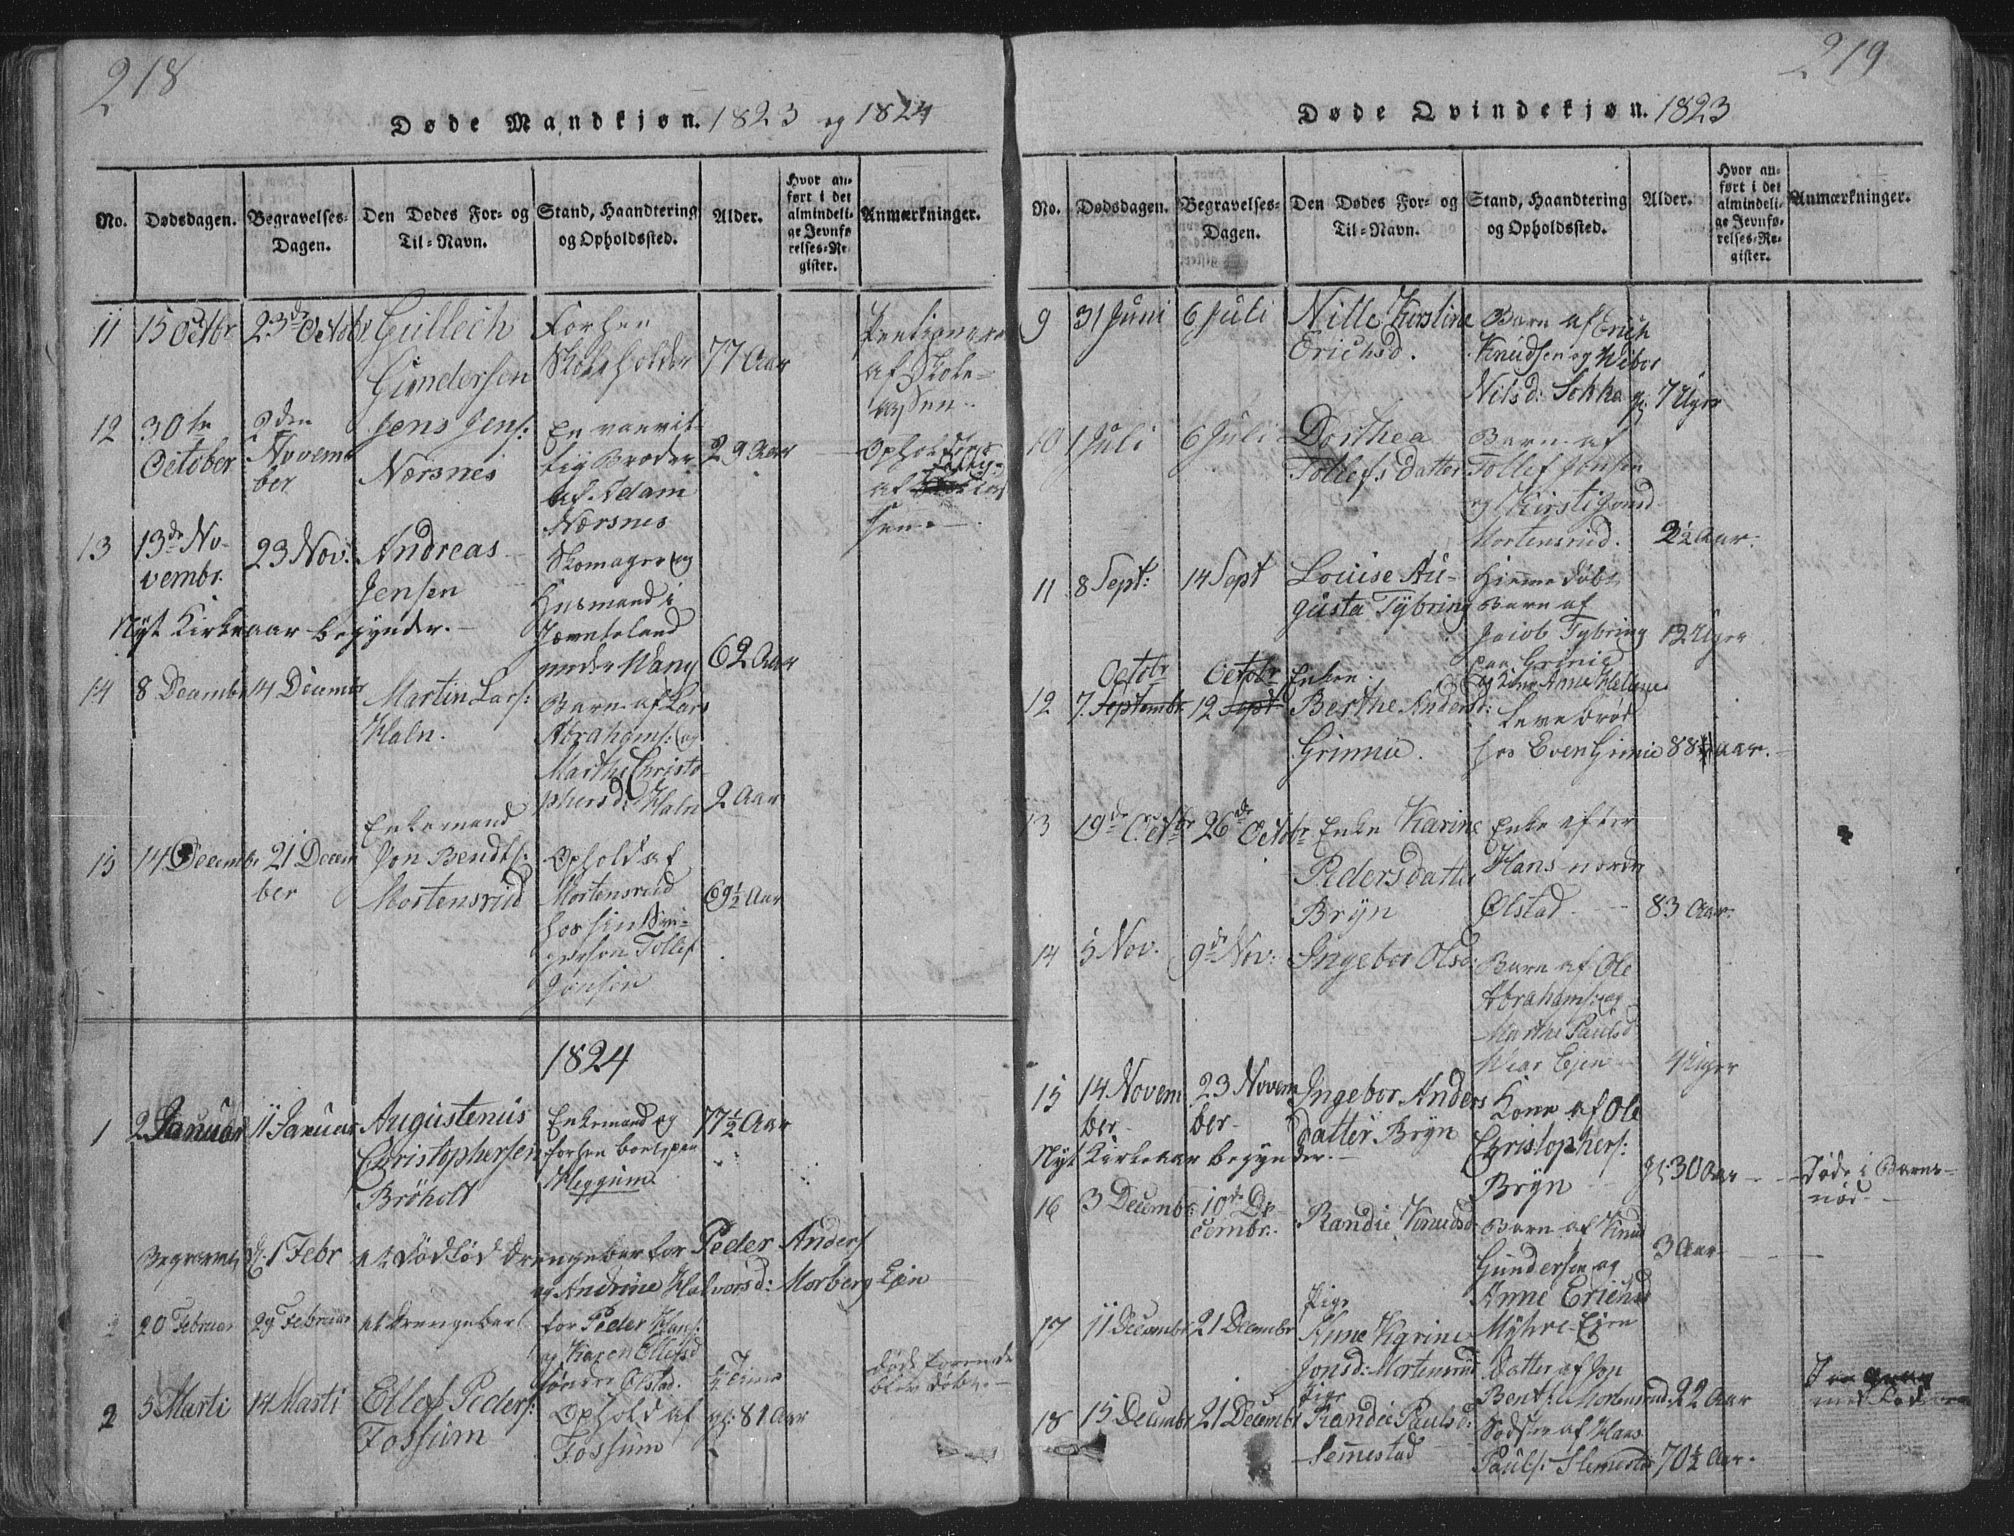 218
Døde Mandkjøn. 1823 og 1824
No. Dødsdagen. Begravelses-Dagen. Den Dødes For- og Til-Navn. Stand, Haandtering og Opholdssted. Alder. Hvor anført i det almindelige Jevnførelses-Register. Anmærkninger.
11 15 Octbr 23de Octobr Gullech
Gundersen
Forhen
Skoleholder 77 Aar
af Skole-
Cassen.
12 30te
October
2den
Novem
ber
Jens Jens:
Nærsnes
En vanvit
tig Broder
af Adam
Nærsnes
29 Aar
af
Cas
sen.
13 13de No-
vembr.
23 Nov: Andreas
Jensen
Skomager og
Husmand i
Jærnteland
62 Aar
Nyt Kirkeaar begynder.
14 8 Decembr 14 Decembr Martin Lars:
Haln.
Barn af Lars
Abrahams: og
Marthe Christo
phersd: Haln 2 Aar
15 14 Decembr 21 Decem
ber
Enkemand
Jon Bendts:
Mortensrud
Ophold af
Mortensrud
hos sin Svi-
gersøn Tollef
Jonsen
69½ Aar
1824
1 2 Januar 11 Januar Augustenus
Christophersen
Bröholt
Enkemand og
forhen
Heggum
77½ Aar
Begravet d: 1 Febr et dödföd Drengebar for Peder Anders
og Andrine Halvorsd: Morberg Eje
20 Februar 29 Februar et Drengebarn
for Peder Hans:
og Karen Ellefsd
söndre Ölstad.
½ Time
död forend
blev döbt.
2 5 Marti 14 Marti Ellef Peders:
Fossum
Ophold af
Fossum
gl: 81 Aar
219
Døde Qvindekjøn. 1823
No. Dødsdagen. Begravelses-Dagen. Den Dødes For- og Til-Navn. Stand, Haandtering og Opholdssted. Alder. Hvor anført i det almindelige Jevnførelses-Register. Anmærkninger.
9 31 Juni 6 Juli Nille Kirstine
Erichsd.
Barn af Erich
Knudsen og Wibor
Nilsd: Sokke gl: 7 Uger
10 1 Juli 6 Juli Dorthea
Tollefs datter
Barn af
Tollef Jonsen
og Kirsti
Mortensrud. 2½ Aar.
11 8 Sept: 14 Sept Louise Au-
gusta Tybring
Hiemmedöbt
Barn af
Jacob Tybring
paa Grimie
og Anne Helene
12 Uger
12 7 Septembr. Octobr 12 Sept Octobr Enken
Berthe Andersd:
Grimie.
Levebröd
hos Even Grimie 88 Aar.
13 19de Octbr 26de Octobr Enke Karine
Pedersdatter
Bryn
Enke efter
Hans nordre
Ölstad 83 Aar.
14 5 Nov. 9de Nov: Ingebor Olsd:
Barn af Ole
Abrahams: og
Marthe Paulsd
Eje 4 Uger
15 14 Novem
ber
23 Novem
ber
Ingebor Anders
datter Bryn
Kone af Ole
Christophers:
Bryn gl: 30 Aar
Döde i Barns-
nöd.
Nyt Kirkeaar begynder.
16 3 Decembr. 10de De
cembr.
Randie Knudsd
Barn af Knud
Gundersen og
Anne Erichsd
Myhre Ejen
3 Aar
17 11 Decembr 21 Decembr Pige
Anne Karine
Jonsd: Mortensrud
Datter af Jon
Bents: Mortensrud 22 Aar
18 15 Decembr 21 Decembr Pige
Randie Paulsd:
Semmestad
Södster af Hans
Pauls: 70½ Aar.